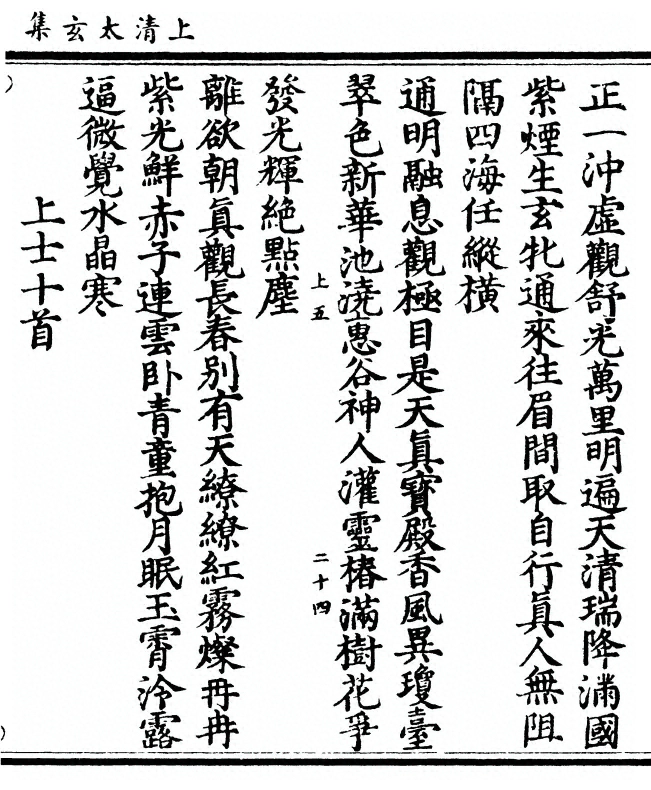 上清太玄集
正一沖虛觀舒光萬里明遍天清瑞降滿國
紫煙生玄牝通來往眉間取自行眞人無阻
隔四海任縱橫
通明融息觀極目是天眞寶殿香風異瓊臺
翠色新華池澆惠谷神人灌靈椿滿樹花爭
上五
二十四
發光輝絕點塵
離欲朝眞觀長春別有天繚繚紅霧燦冉冉
紫光鮮赤子連雲卧青童抱月眠玉霄泠露
逼微覺水晶寒
上士十首